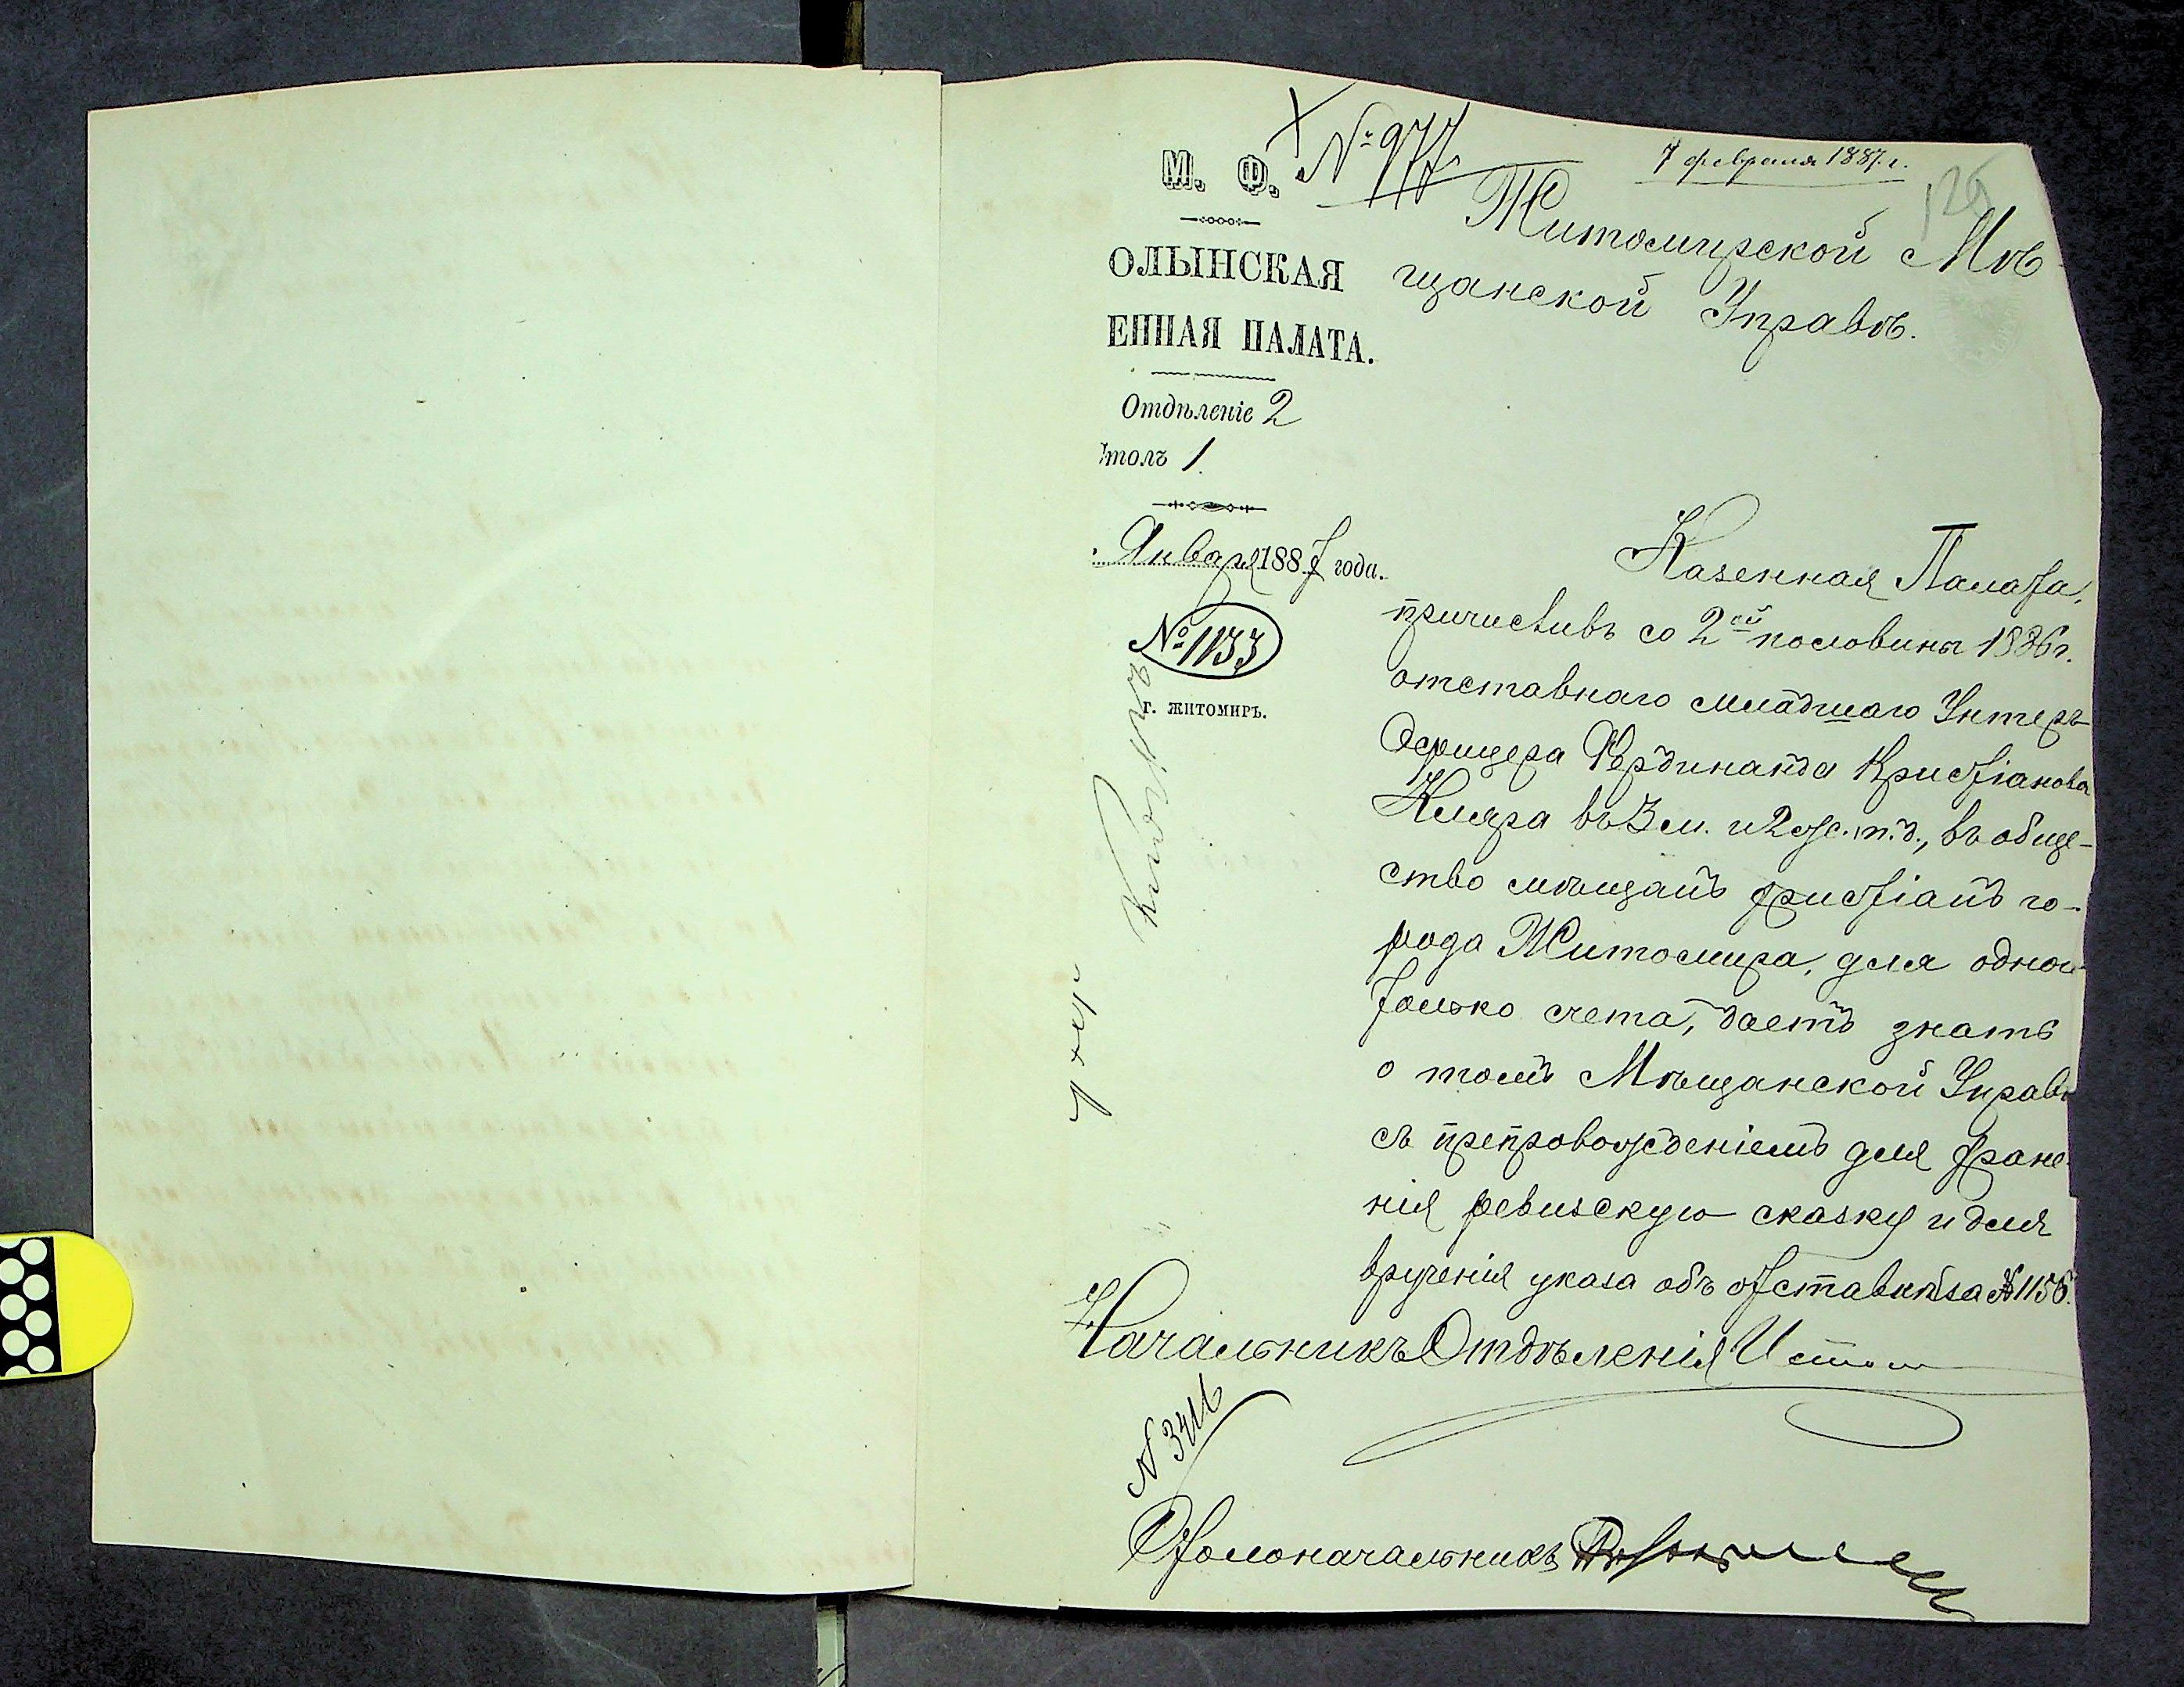 М. Ф.
№ 977
7 февраля 1887 г.
126
Житомирской Мѣ-
щанской Управѣ.
ОЛЫНСКАЯ
ЕННАЯ ПАЛАТА.
Отдѣленіе 2
толъ 1.
Января 1887 года.
№ 1133
г. ЖИТОМИРЪ.
Казенная Палата,
причисливъ со 2ой половины 1886 г.
отставнаго младшаго Унтеръ
Офицера Фердинанда Кристіанова
Кляра въ 3 м. и 2 ж. п. д., въ обще-
ство мѣщанъ христіанъ го-
рода Житомира, для одного
только счета, даетъ знать
о томъ Мѣщанской Управѣ
съ препровожденіемъ для хране-
нія ревизскую сказку и для
врученія указа объ отставкѣ за № 1156.
Начальникъ Отдѣленія
№ 3416
Столоначальникъ